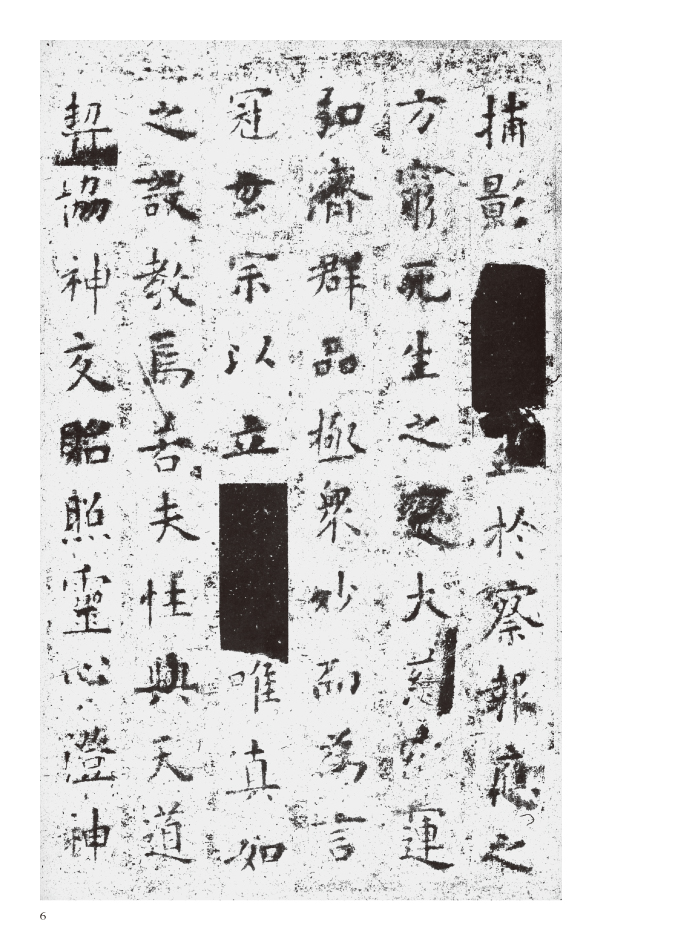 捕影至於察報應之
方窮死生之變大慈運
弘濟群品極衆妙而為言
冠玄宗以立唯真如
之設教焉若夫性與天道
契協神交貽照靈心澄神
6